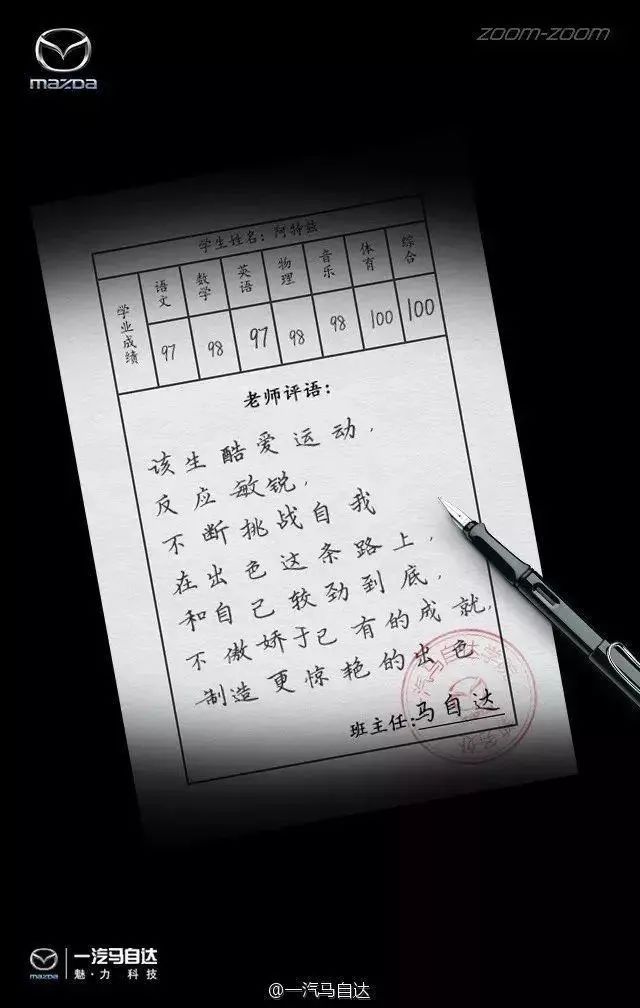 mazda
zoom-zoom
学生姓名：阿特兹
学业成绩 语文 数学 英语 物理 音乐 体育 综合
97 98 97 98 98 100 100
老师评语：
该生酷爱运动，
反应敏锐，
不断挑战自我
在出色这条路上，
和自己较劲到底，
不傲娇于已有的成就，
制造更惊艳的出色
班主任：马自达
一汽马自达学
mazda
一汽马自达
魅·力 科技
@一汽马自达